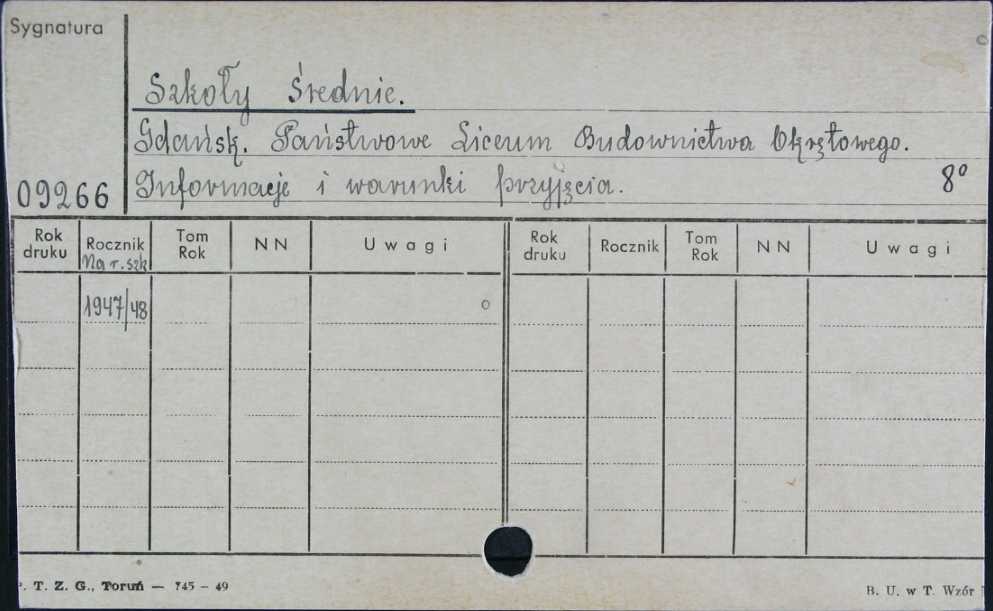 Sygnatura
Szkoły Średnie.
Gdańsk. Państwowe Liceum Budownictwa Okrętowego.
09266 Informacje i warunki przyjęcia. 8°
Rok druku Rocznik Na r. szk. Tom Rok NN Uwagi Rok druku Rocznik Tom Rok NN Uwagi
1947/48 o
. T. Z. G., Toruń — 745 – 49 B. U. w T. Wzór